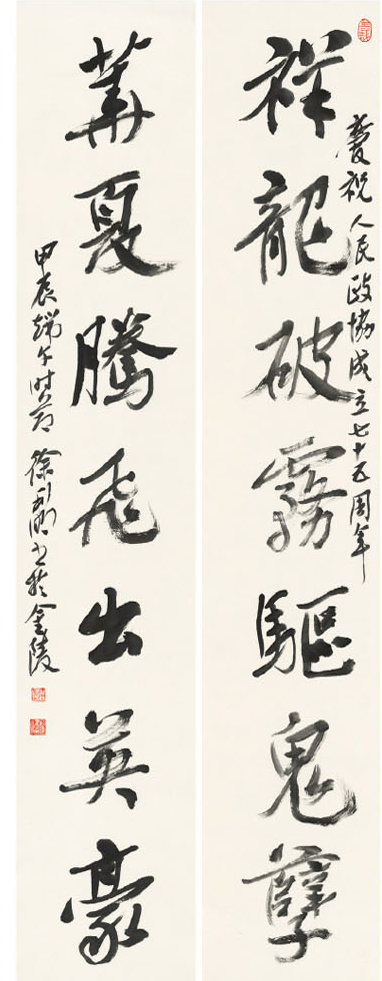 慶祝人民政協成立七十五周年
祥龍破霧驅鬼孽
華夏騰飛出英豪
甲辰端午時節 徐利明書於金陵